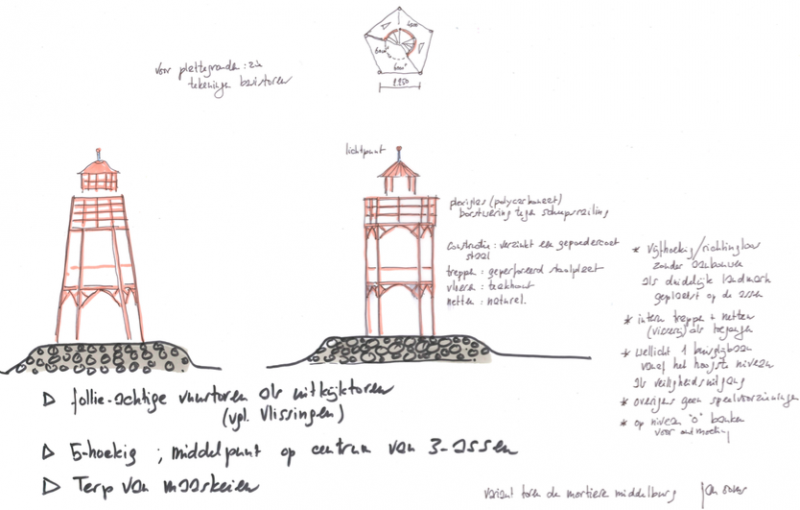 voor plattegronden: zie
tekeningen basistoren
600
600
600
1950
lichtpunt
plexiglas (polycarbonaat)
borstwering tegen scheepsrailing
constructie: verzinkt en gepoedercoat
staal
trappen: geperforeerd staalplaat
vloeren: teakhout
netten: naturel.
* vijfhoekig/richtingloos
zonder aanbouwen
als duidelijke landmark
geplaatst op de assen
* intern trappen + netten
(visserij) als toegangen
* wellicht 1 buisglijbaan
vanaf het hoogste niveau
als veiligheidsuitgang
* overigens geen speelvoorzieningen
* op niveau "0" banken
voor ontmoeting
▷ follie-achtige vuurtoren als uitkijktoren
(vgl. Vlissingen)
▷ 5-hoekig ; middelpunt op centrum van 3-assen
▷ Terp van maaskeien
variant toren de mortiere middelburg